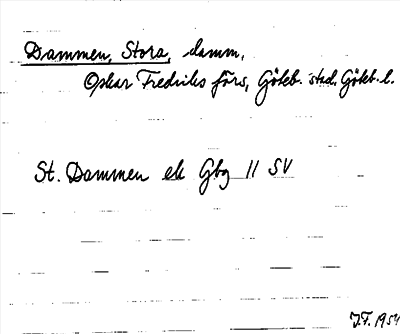 Dammen, Stora, damm,
Oskar Fredriks förs, Göteb. stad. Göteb. l.
St. Dammen ek Gbg 11 SV
J.F. 1954